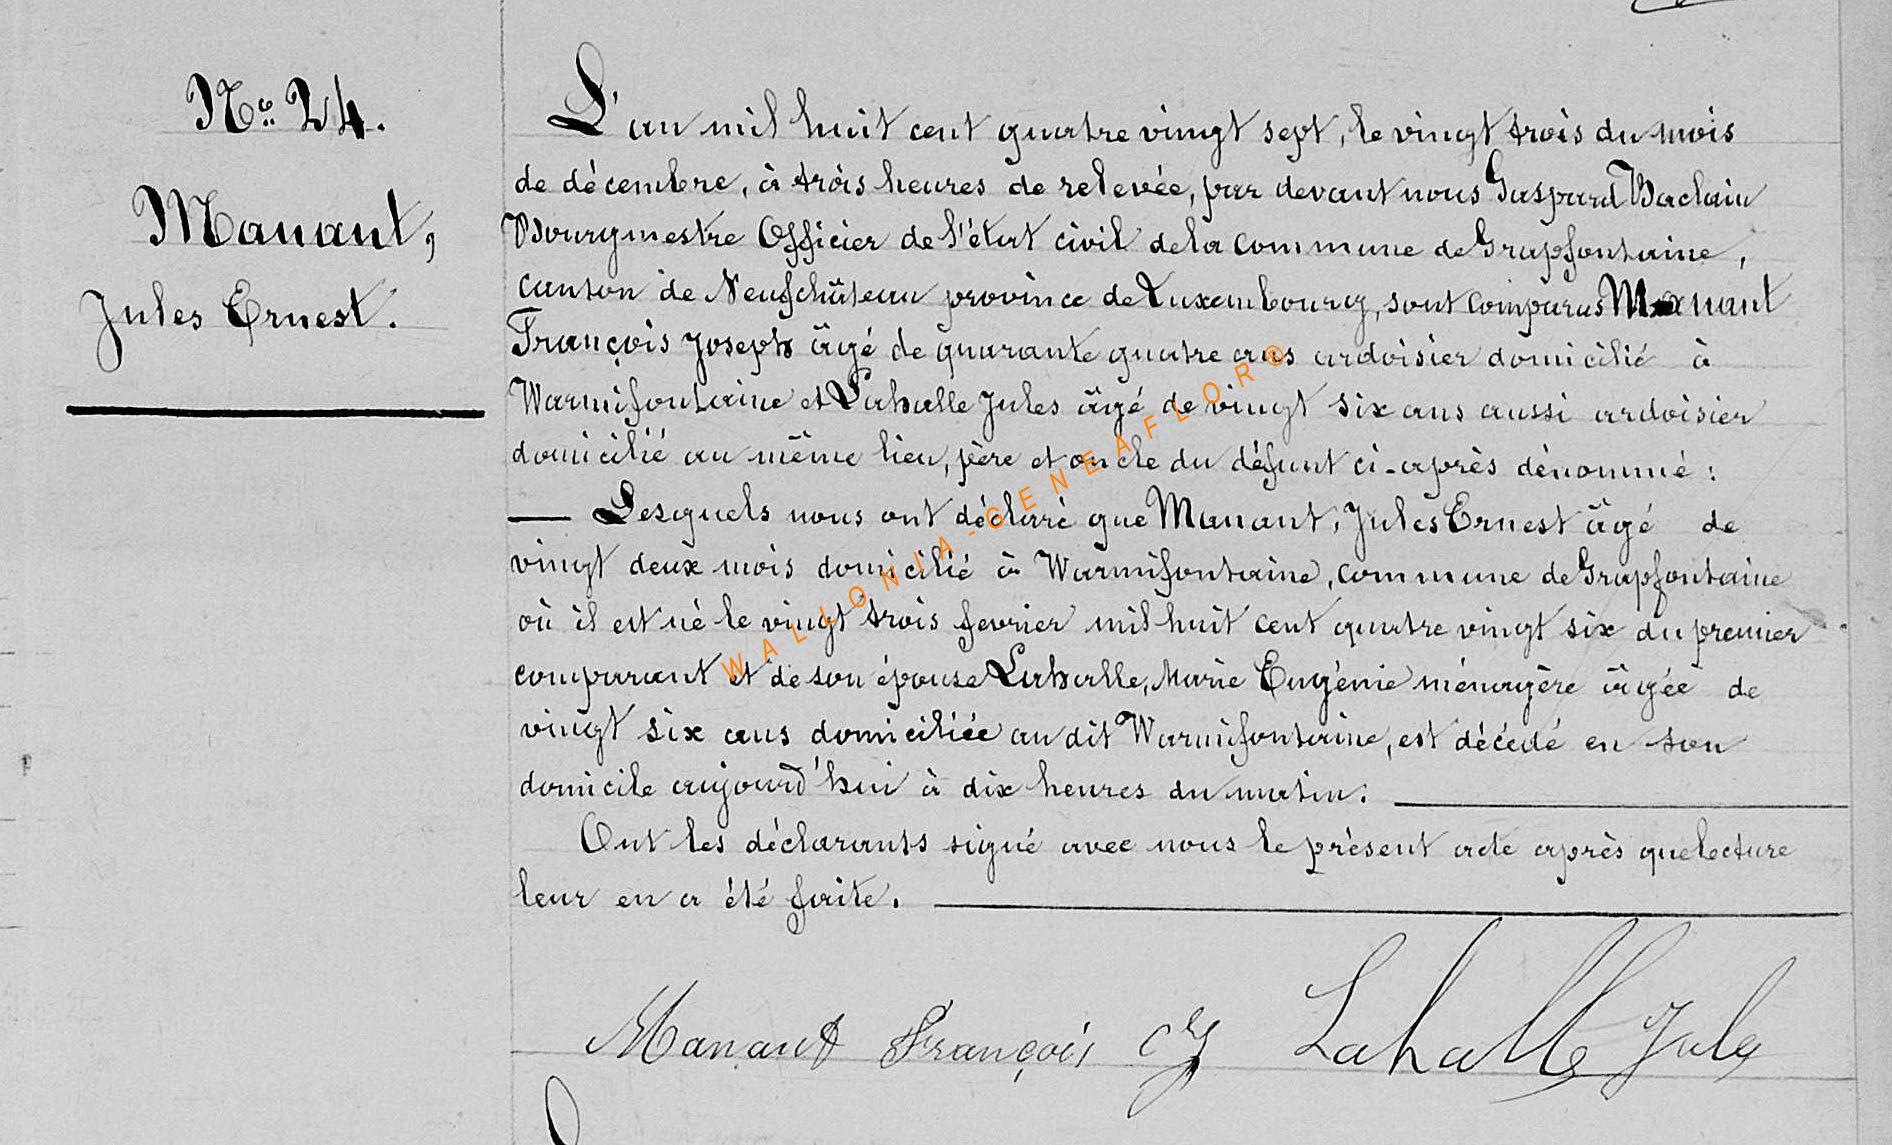 Nº 24.
Manant,
Jules Ernest.
L'an mil huit cent quatre vingt sept, le vingt trois du mois
de décembre, à trois heures de relevée, par devant nous Gaspard Baclain
Bourgmestre Officier de l'état civil de la commune de Grapfontaine,
canton de Neufchâteau province de Luxembourg, sont comparus Manant
François Joseph âgé de quarante quatre ans ardoisier domicilié à
Warmifontaine et Lahalle Jules âgé de vingt six ans aussi ardoisier
domicilié au même lieu, père et oncle du défunt ci-après dénommé :
— Lesquels nous ont déclaré que Manant, Jules Ernest âgé de
vingt deux mois domicilié à Warmifontaine, commune de Grapfontaine
où il est né le vingt trois fevrier mil huit cent quatre vingt six du premier
comparant et de son épouse Lahalle, Marie Eugénie ménagère âgée de
vingt six ans domiciliée au dit Warmifontaine, est décédé en son
domicile aujourd'hui à dix heures du matin.
Ont les déclarants signé avec nous le présent acte après que lecture
leur en a été faite.
Manant François Lahalle Jules
WALLONIA-GENEAFLOR®